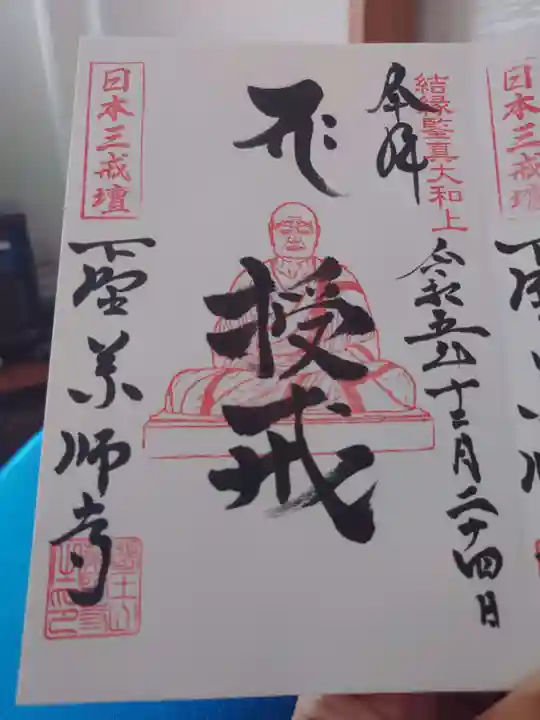 結縁鑒真大和上
奉拝
令和五年十二月二十四日
授戒
日本三戒壇
下野薬師寺
日本三戒壇